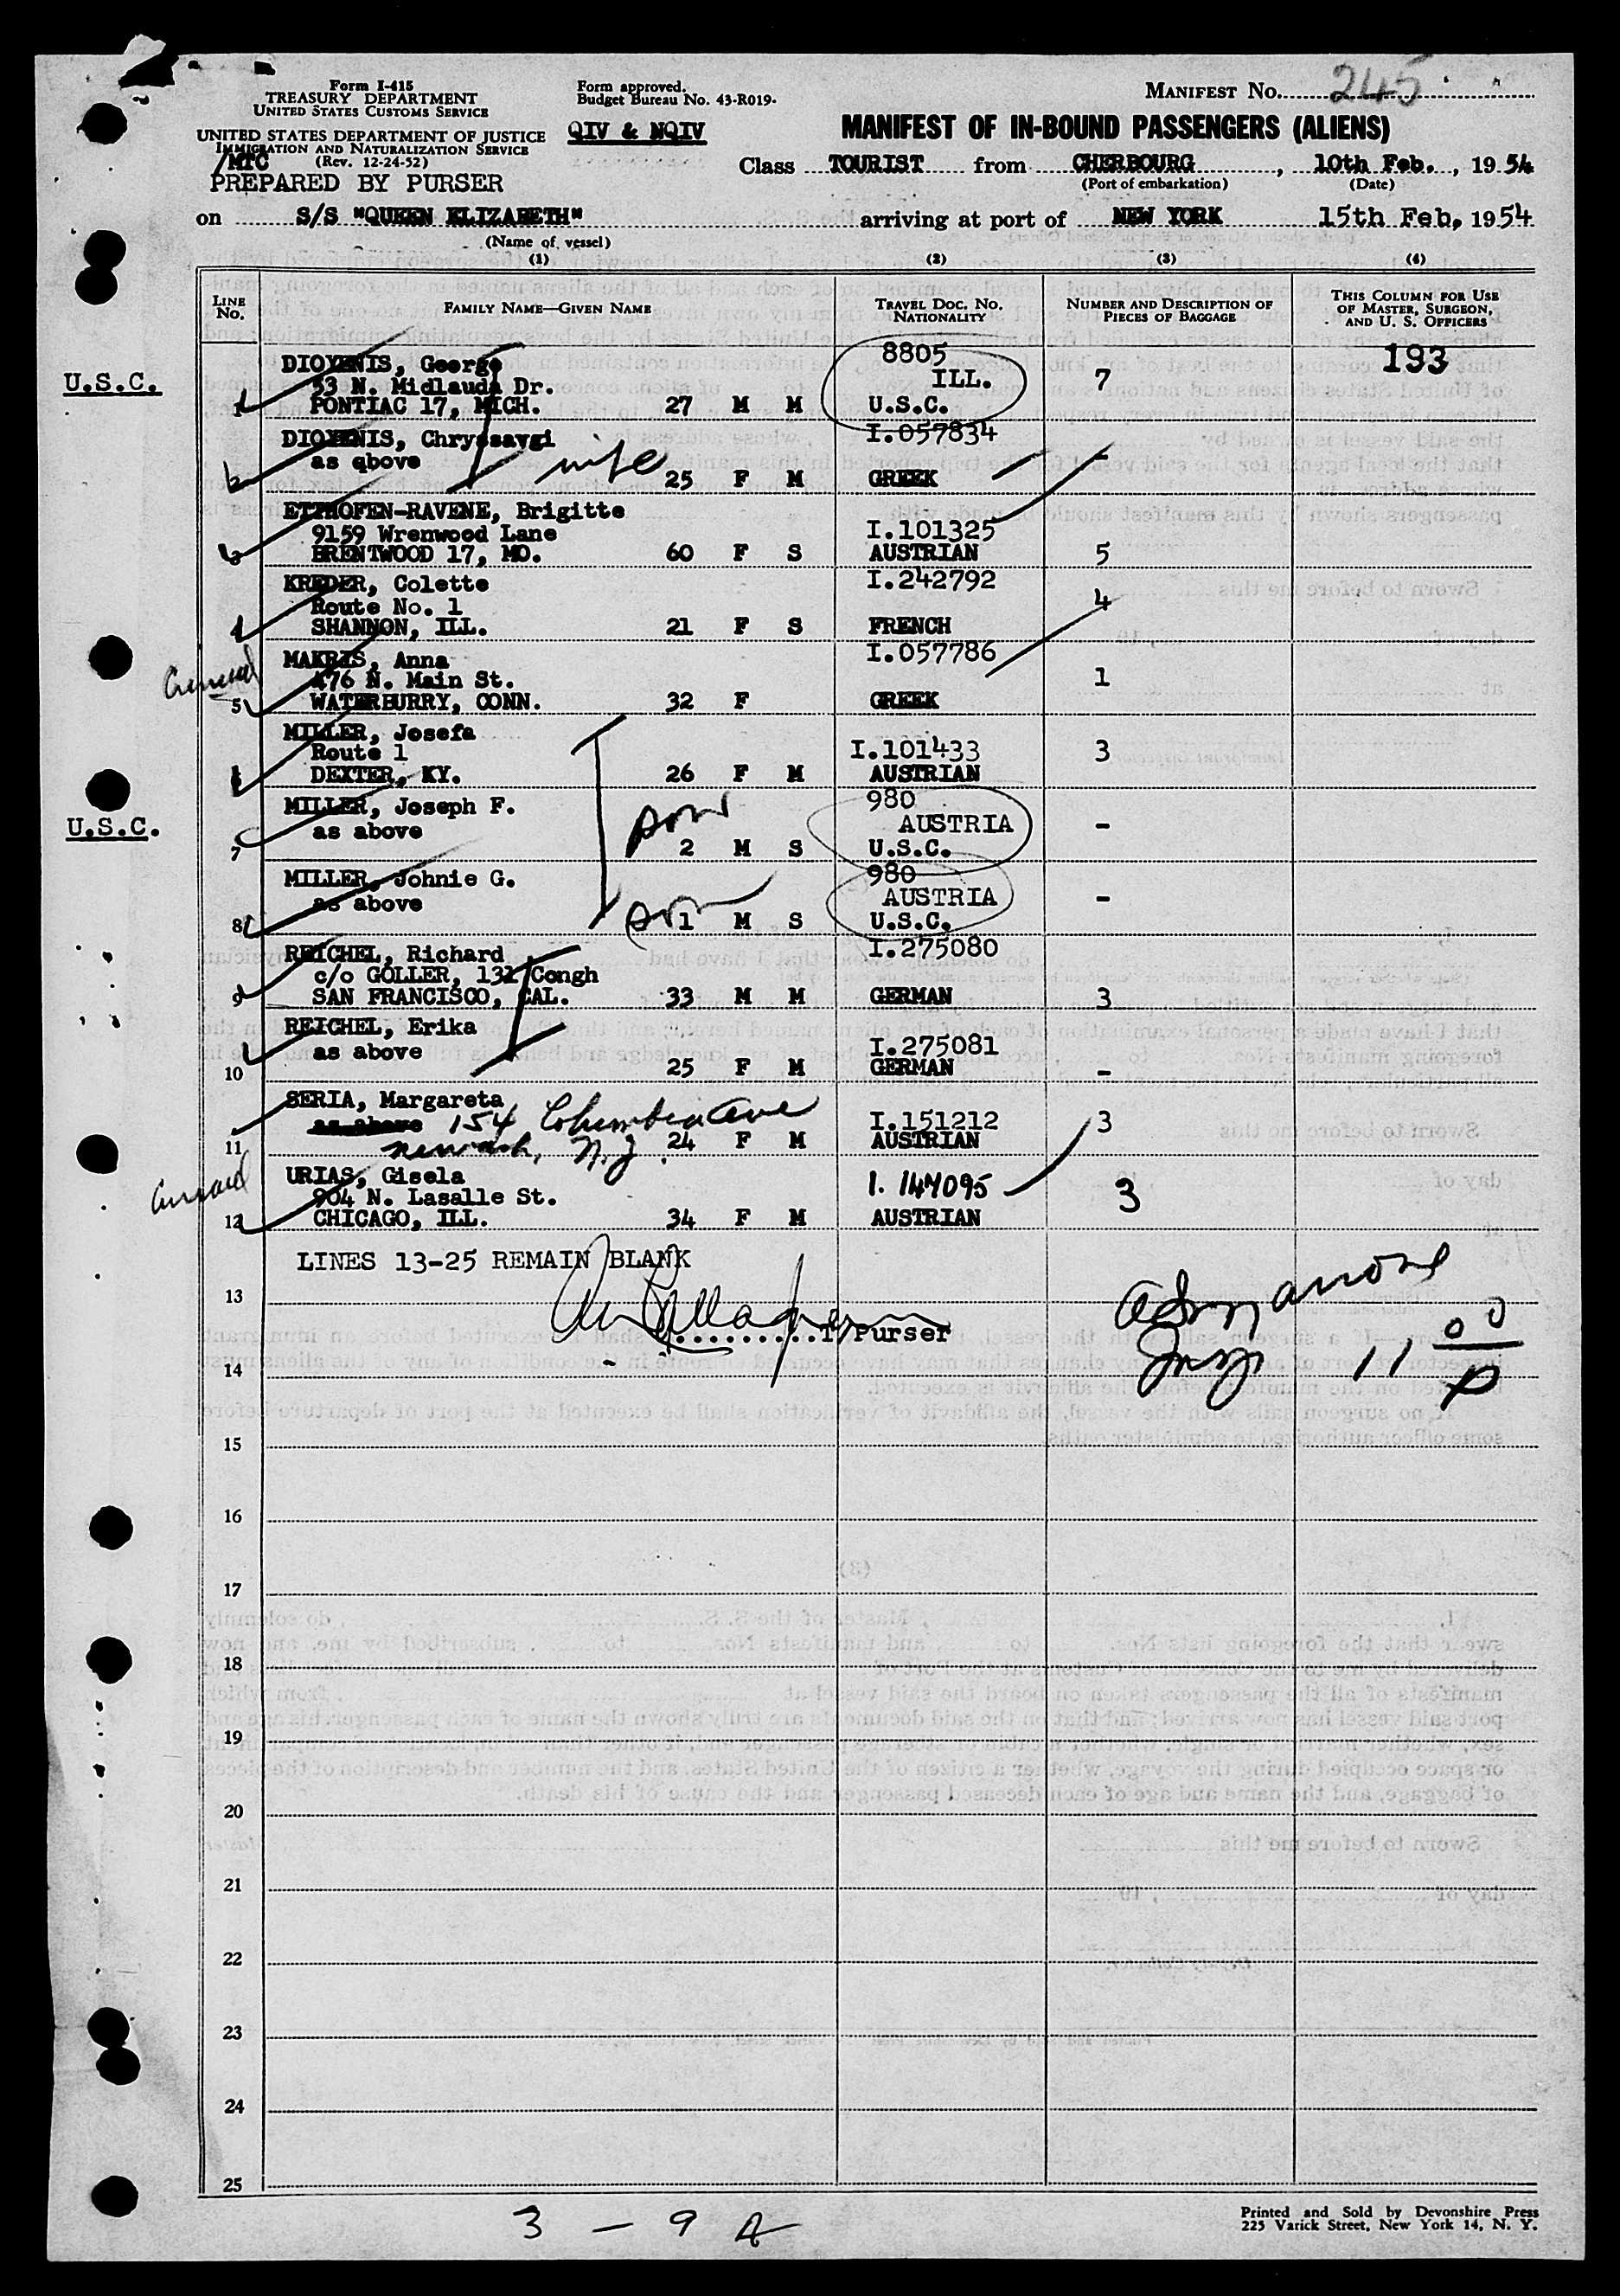 Form I-415
TREASURY DEPARTMENT
UNITED STATES CUSTOMS SERVICE
UNITED STATES DEPARTMENT OF JUSTICE
IMMIGRATION AND NATURALIZATION SERVICE
/MTC (Rev. 12-24-52)
PREPARED BY PURSER
Form approved.
Budget Bureau No. 43-R019.
QIV & NQIV
MANIFEST No. 245
MANIFEST OF IN-BOUND PASSENGERS (ALIENS)
Class TOURIST from CHERBOURG, 10th Feb., 1954
(Port of embarkation) (Date)
on S/S "QUEEN ELIZABETH" arriving at port of NEW YORK 15th Feb, 1954
(Name of vessel)
(1) (2) (3) (4)
LINE No. FAMILY NAME—GIVEN NAME TRAVEL DOC. NO. NATIONALITY NUMBER AND DESCRIPTION OF PIECES OF BAGGAGE THIS COLUMN FOR USE OF MASTER, SURGEON, AND U. S. OFFICERS
193
U.S.C.
George 8805
53 N. Midlauda Dr. ILL. 7
1 PONTIAC 17, MICH. 27 M M U.S.C.
Chryssavgi I.057834
as qbove wife -
2 25 F M GREEK
ETTHOFEN-RAVENE, Brigitte
9159 Wrenwood Lane I.101325
3 BRENTWOOD 17, MO. 60 F S AUSTRIAN 5
KREDER, Colette I.242792
Route No. 1 4
4 SHANNON, ILL. 21 F S FRENCH
MAKRIS, Anna I.057786
476 N. Main St. 1
5 WATERBURRY, CONN. 32 F GREEK
MILLER, Josefa
Route 1 I.101433 3
6 DEXTER, KY. 26 F M AUSTRIAN
U.S.C.
MILLER, Joseph F. son 980
as above AUSTRIA -
7 2 M S U.S.C.
MILLER, Johnie G. 980
as above AUSTRIA -
8 son 1 M S U.S.C.
REICHEL, Richard I.275080
c/o GOLLER, 131 Congh
9 SAN FRANCISCO, CAL. 33 M M GERMAN 3
REICHEL, Erika
as above I.275081
10 25 F M GERMAN -
SERIA, Margareta
as above 154 Columbia Ave I.151212 3
11 Newark, N.J. 24 F M AUSTRIAN
URIAS, Gisela
904 N. Lasalle St. I. 147095 3
12 CHICAGO, ILL. 34 F M AUSTRIAN
LINES 13-25 REMAIN BLANK
13
..........T/Purser
11 00
14
15
16
17
18
19
20
21
22
23
24
25
3 - 9 A
Printed and Sold by Devonshire Press
225 Varick Street, New York 14, N. Y.